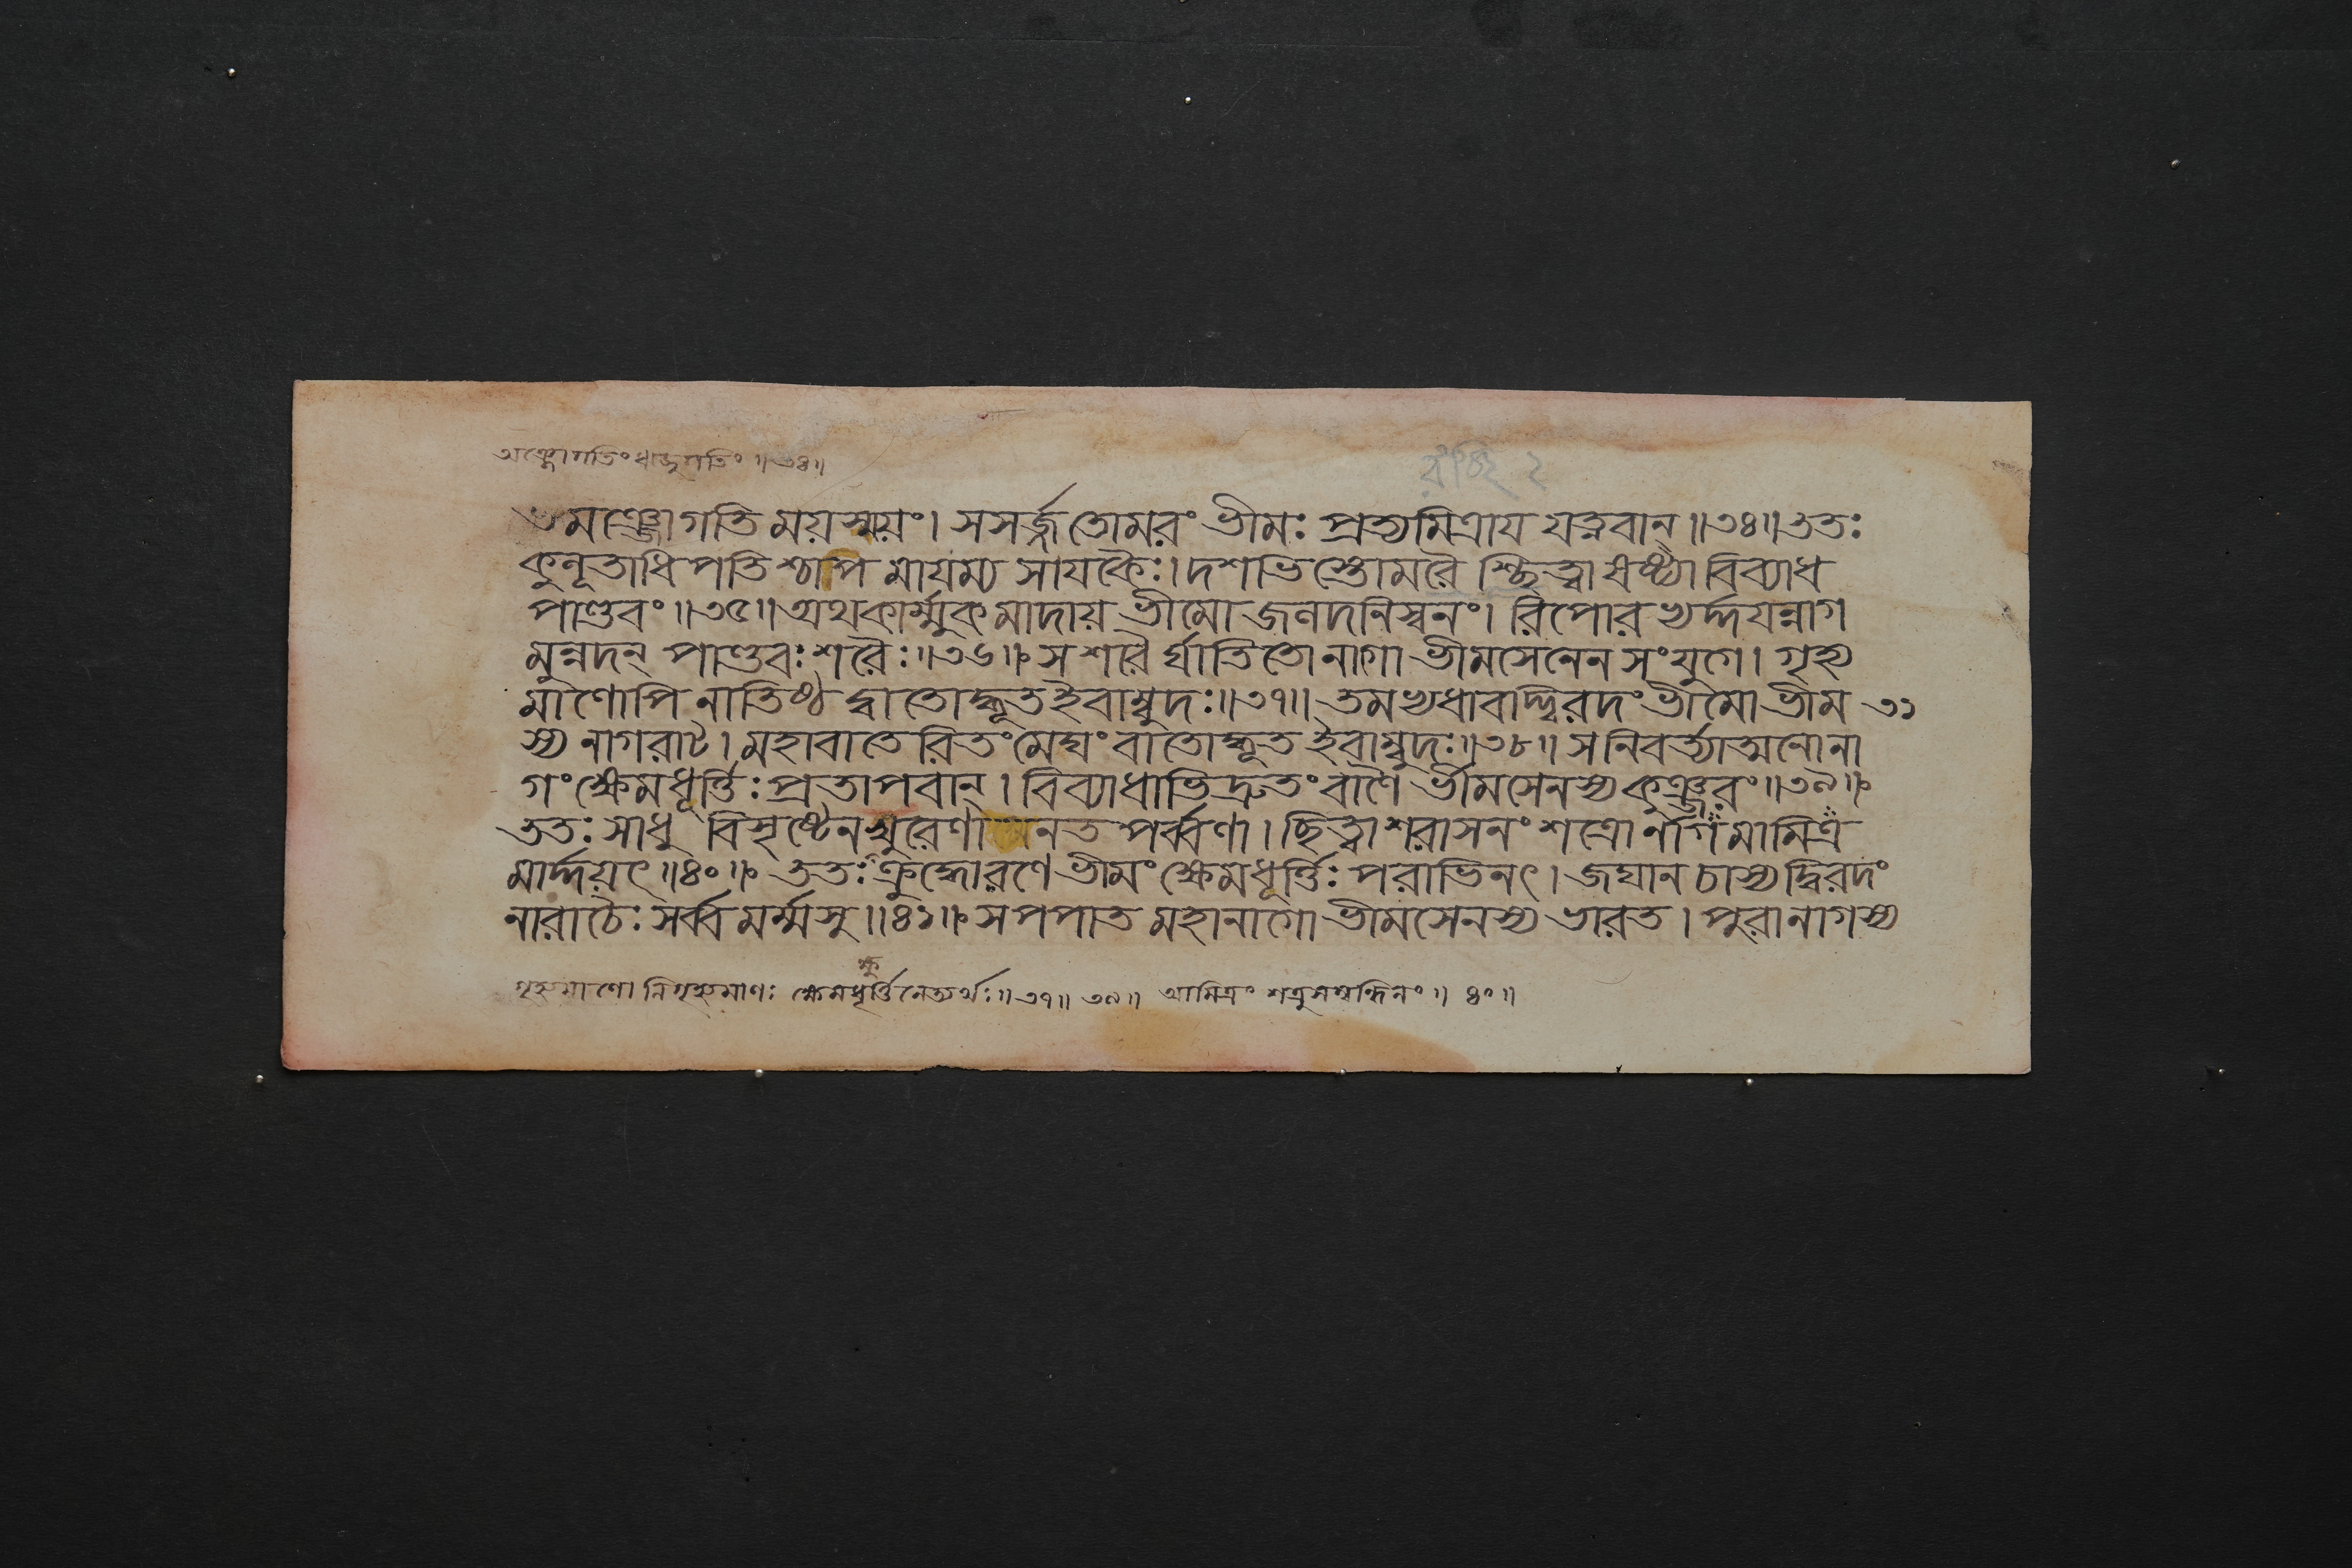 অঞ্জোগতিং ঋজুগতিং ॥৩৪॥
তমঞ্জোগতিময়স্ময়ং। সসর্জ্জ তোমরং ভীমঃ প্রত্যমিত্রায় যত্নবান্॥৩৪॥ততঃ
কুলূতাধিপতিশ্চাপমায়ম্য সাযকৈঃ।দশভিস্তোমরৈশ্ছিত্ত্বা ষষ্ট্যা বিব্যাধ
পাণ্ডবং॥৩৫॥অথকার্ম্মুকমাদায় ভীমো জলদনিস্বনং। রিপোরভ্যর্দ্দয়ন্নাগ
মুন্নদন্ পাণ্ডবঃ শরৈঃ॥৩৬॥ স শরৈর্ঘাতিতো নাগো ভীমসেনেন সংযুগে। গৃহ্য
মাণোপি নাতিষ্ঠদ্বাতোদ্ধূত ইবাম্বুদঃ॥৩৭॥ তমভ্যধাবদ্দ্বিরদং ভীমো ভীম ৩১
স্য নাগরাট। মহাবাতেরিতং মেঘং বাতোদ্ধূত ইবাম্বুদঃ॥৩৮॥ সনিবর্ত্যাত্মনো না
গং ক্ষেমধূর্ত্তিঃ প্রতাপবান্। বিব্যাধাভিদ্রুতং বাণৈর্ভীমসেনস্য কুঞ্জরং॥৩৯॥
ততঃ সাধু বিসৃষ্টেন ক্ষুরেণা নত পর্ব্বণা। ছিত্ত্বা শরাসনং শত্রোর্নাগমামিত্র
মার্দ্দয়ৎ॥৪০॥ ততঃ ক্রুদ্ধো রণে ভীমং ক্ষেমধূর্ত্তিঃ পরাভিনৎ। জঘান চাস্য দ্বিরদং
নারাচৈঃ সর্ব্বমর্ম্মসু॥৪১॥ স পপাত মহানাগো ভীমসেনস্য ভারত। পুরা নাগস্য
গৃহ্যমাণো নিগৃহ্যমাণঃ ক্ষেমধূর্ত্তিনেত্যর্থঃ॥৩৭॥ ৩৯॥ আমিত্রং শত্রুসম্বন্ধিনং॥ ৪০॥